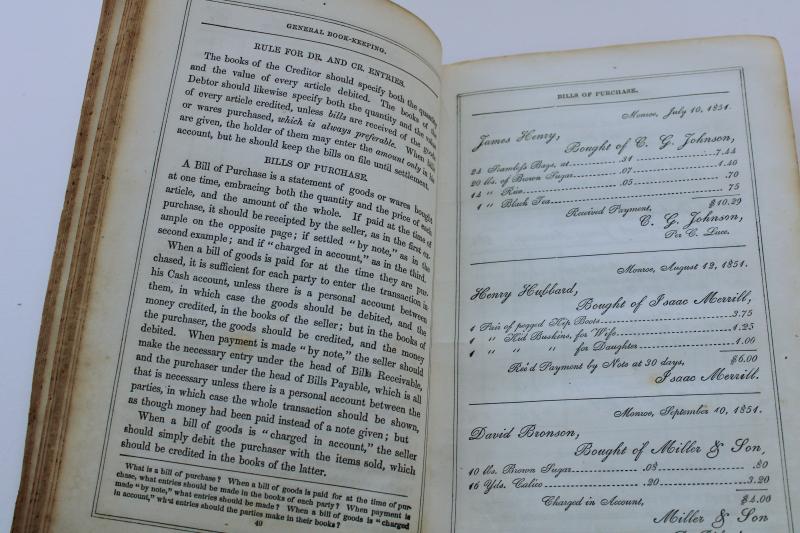 GENERAL BOOK-KEEPING.
RULE FOR DR. AND CR. ENTRIES.
The books of the Creditor should specify both the quantity
and the value of every article debited. The books of the
Debtor should likewise specify both the quantity and the value
of every article credited, unless bills are received of the goods
or wares purchased, which is always preferable. When bills
are given, the holder of them may enter the amount only in his
account, but he should keep the bills on file until settlement.
BILLS OF PURCHASE.
A Bill of Purchase is a statement of goods or wares bought
at one time, embracing both the quantity and the price of each
article, and the amount of the whole. If paid at the time of
purchase, it should be receipted by the seller, as in the first ex-
ample on the opposite page; if settled "by note," as in the
second example; and if "charged in account," as in the third.
When a bill of goods is paid for at the time they are pur-
chased, it is sufficient for each party to enter the transaction in
his Cash account, unless there is a personal account between
them, in which case the goods should be debited, and the
money credited, in the books of the seller; but in the books of
the purchaser, the goods should be credited, and the money
debited. When payment is made "by note," the seller should
make the necessary entry under the head of Bills Receivable,
and the purchaser under the head of Bills Payable, which is all
that is necessary unless there is a personal account between the
parties, in which case the whole transaction should be shown,
as though money had been paid instead of a note given; but
When a bill of goods is "charged in account," the seller
should simply debit the purchaser with the items sold, which
should be credited in the books of the latter.
What is a bill of purchase? When a bill of goods is paid for at the time of pur-
chase, what entries should be made in the books of each party? When payment is
made "by note," what entries should be made? When a bill of goods is "charged
in account," what entries should the parties make in their books?
49
BILLS OF PURCHASE.
Monroe, July 10, 1851.
James Henry,
Bought of C. G. Johnson,
24 Seamless Bags, at .31 7.44
20 lbs. of Brown Sugar .07 1.40
14 " Rice .05 .70
1 " Black Tea 75
$10.29
Received Payment,
C. G. Johnson,
Per C. Luce.
Monroe, August 12, 1851.
Henry Hubbard,
Bought of Isaac Merrill,
1 Pair of pegged Kip Boots 3.75
1 " Kid Buskins, for Wife 1.25
1 " " " for Daughter 1.00
$6.00
Rec'd Payment by Note at 30 days,
Isaac Merrill.
Monroe, September 10, 1851.
David Bronson,
Bought of Miller & Son,
10 lbs. Brown Sugar .08 .80
16 Yds. Calico .20 3.20
$4.00
Charged in Account,
Miller & Son